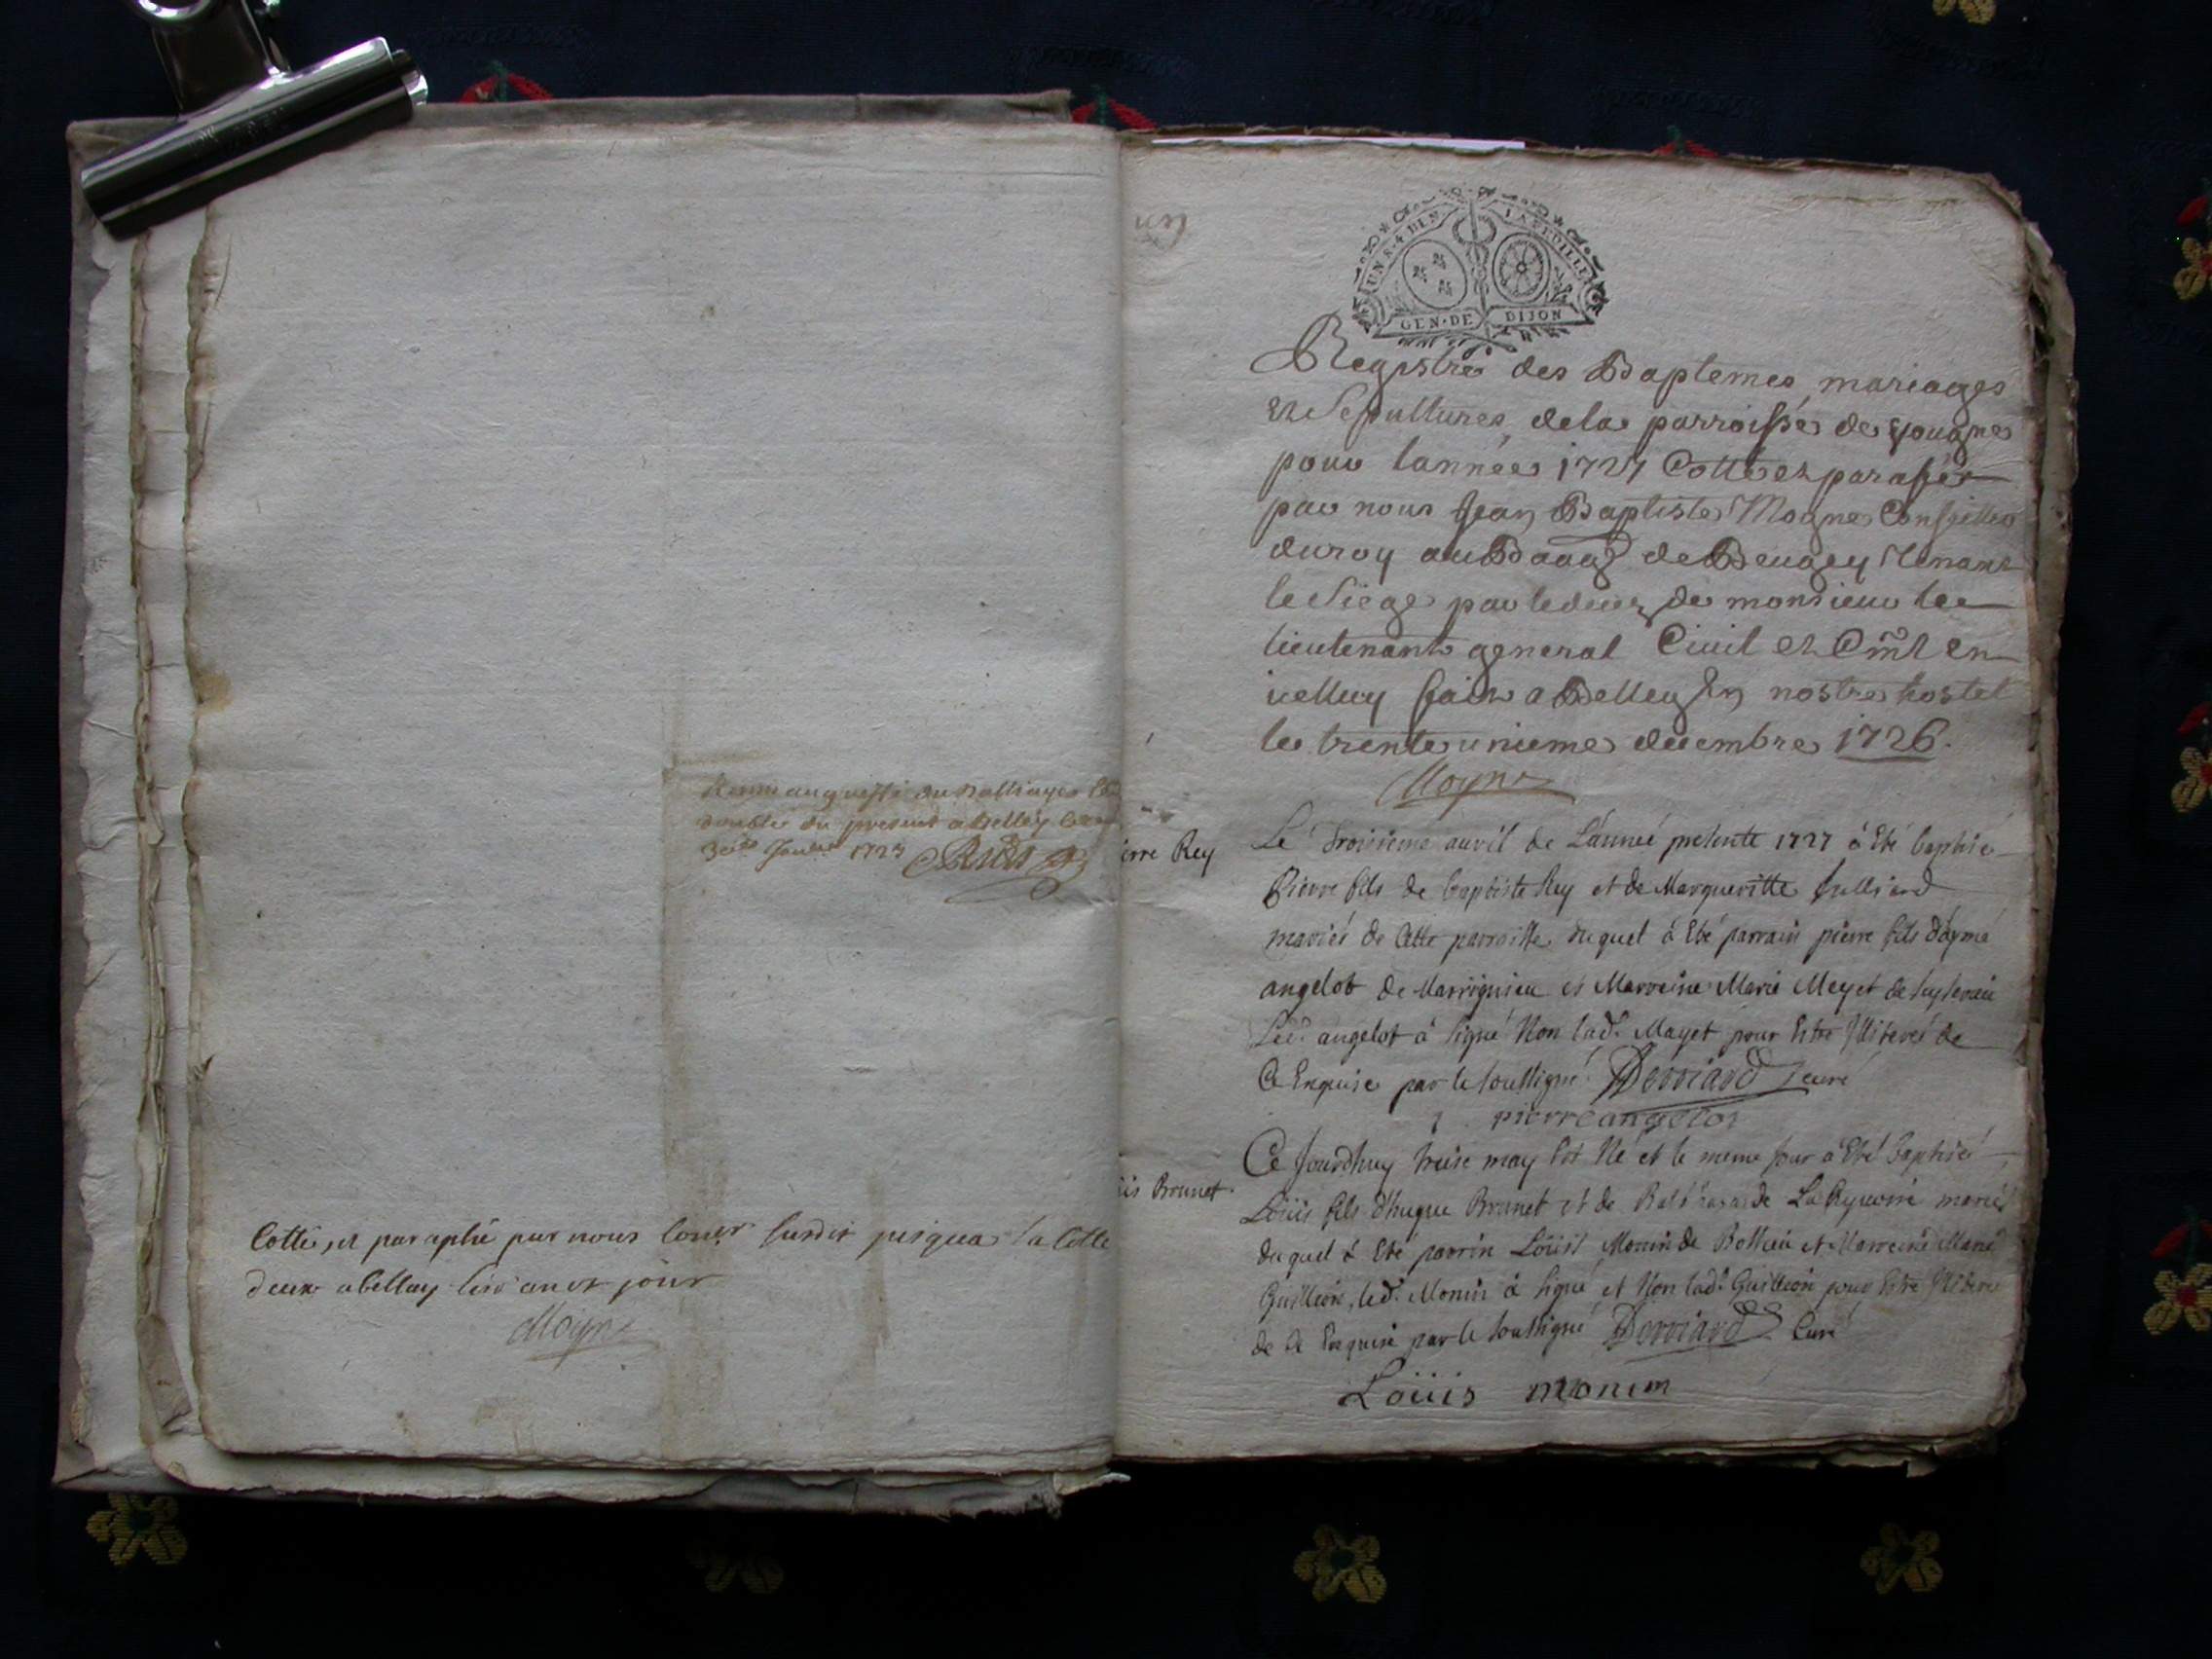 du present a Belley
30e 1723
Cotté, et paraphé par nous susdit jusqua la Cotte
deux a belley les an et jour
Moyne
UN S. 4 DEN. LA FEUILLE
GEN. DE DIJON
Registre des Baptemes mariages
et Sepultures de la parroisse de yougne
pour lannée 1727 Cotté et parafér
par nous Jean Baptiste Mogne Conseiller
du roy au Baage de Beugey tenant
le Siege par le deces de monsieur le
lieutenant general Civil et Cmel en
icelluy fait a Belley En nostre hostel
le trente unieme decembre 1726.
Moyne
erre Rey
Le troisieme auvil de L'année presente 1727 à Eté baptisé
Pierre fils de baptiste Rey et de Margueritte Julliard
mariés de Cette parroisse duquel à Eté parrain pierre fils d'aymé
angelot de Marrignieu et Marreine Marie Meyet de
Led. angelot à signé Non lad. Mayet pour Estre Illiteree de
Ce Enquise par le soussigné Derriard curé
pierre angelot
Ce Jourdhuy treise may Est Né et le meme jour à Eté baptisé
is Brunet
Loüis fils d'hugue Brunet et de de mariés
duquel à Eté parrin Loüis Monin de et Marreine Marie
Guillion, led. Monin à signé et Non lad. Guillion pour Estre
de Ce Enquise par le soussigné Derriard Curé
Loüis monin